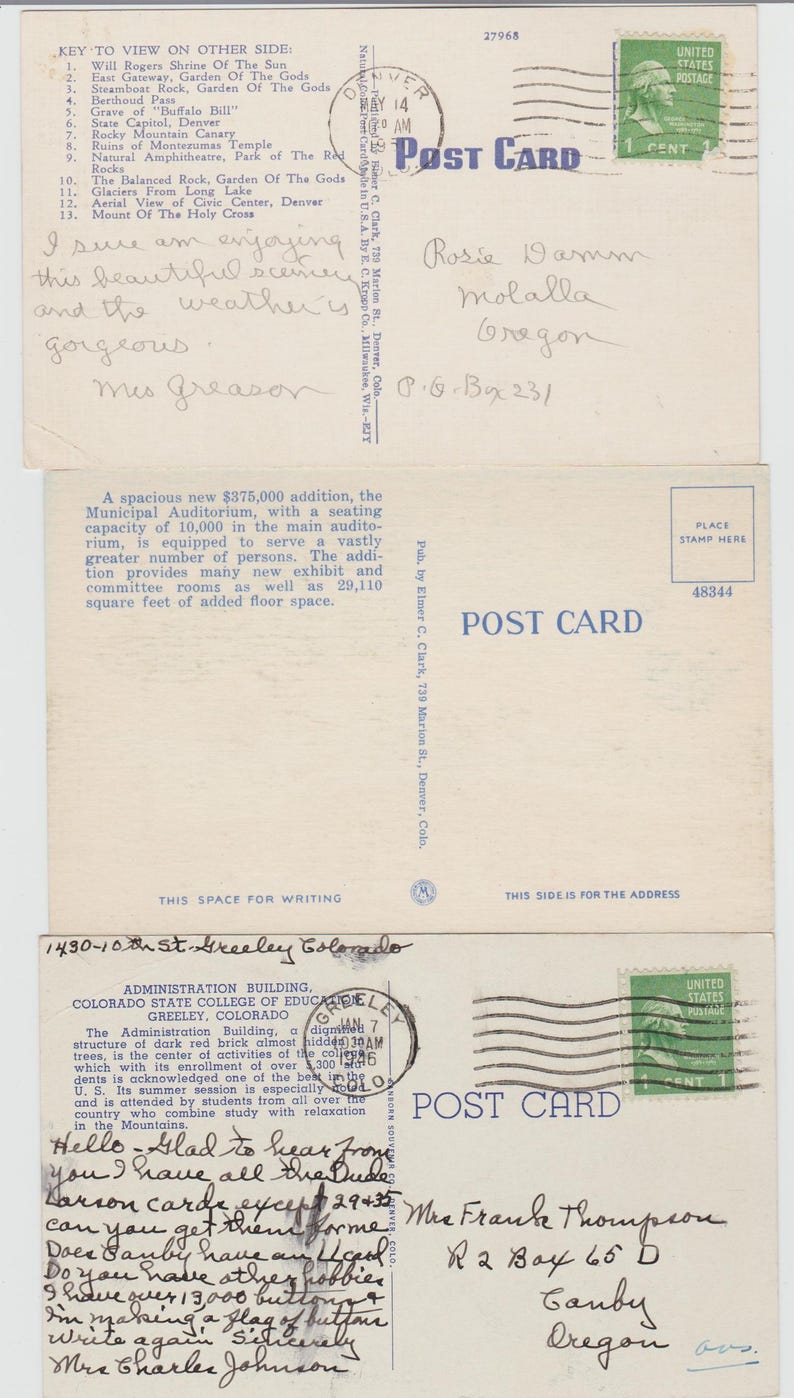 27968
KEY TO VIEW ON OTHER SIDE:
1. Will Rogers Shrine Of The Sun
2. East Gateway, Garden Of The Gods
3. Steamboat Rock, Garden Of The Gods
4. Berthoud Pass
5. Grave of "Buffalo Bill"
6. State Capitol, Denver
7. Rocky Mountain Canary
8. Ruins of Montezumas Temple
9. Natural Amphitheatre, Park of The Red
Rocks
10. The Balanced Rock, Garden Of The Gods
11. Glaciers From Long Lake
12. Aerial View of Civic Center, Denver
13. Mount Of The Holy Cross
I sure am enjoying
this beautiful scenery
and the weather is
gorgeous.
Mrs Greason
Published by Elmer C. Clark, 739 Marion St., Denver, Colo.
Natural Color Post Card Made in U.S.A. By E. C. Kropp Co., Milwaukee, Wis.-EJY
DENVER
MAY 14
AM
COLO.
POST CARD
UNITED
STATES
POSTAGE
GEORGE
WASHINGTON
1 CENT 1
Rosie Damm
Molalla
Oregon
P.O. Box 231
A spacious new $375,000 addition, the
Municipal Auditorium, with a seating
capacity of 10,000 in the main audito-
rium, is equipped to serve a vastly
greater number of persons. The addi-
tion provides many new exhibit and
committee rooms as well as 29,110
square feet of added floor space.
Pub. by Elmer C. Clark, 739 Marion St., Denver, Colo.
PLACE
STAMP HERE
48344
POST CARD
THIS SPACE FOR WRITING
M
THIS SIDE IS FOR THE ADDRESS
1430-10th St. Greeley Colorado
ADMINISTRATION BUILDING,
COLORADO STATE COLLEGE OF EDUCATION
GREELEY, COLORADO
The Administration Building, a dignified
structure of dark red brick almost hidden in
trees, is the center of activities of the college
which with its enrollment of over 5,300 stu-
dents is acknowledged one of the best in the
U. S. Its summer session is especially noted
and is attended by students from all over the
country who combine study with relaxation
in the Mountains.
Hello - Glad to hear from
you I have all the Dude
Larson cards except 29+35
can you get them for me
Does Canby have an U card
Do you have other hobbies
I have over 13,000 buttons +
I'm making a flag of buttons
Write again Sincerely
Mrs Charles Johnson
SANBORN SOUVENIR CO., DENVER, COLO.
GREELEY
JAN 7
10 30 AM
1946
COLO.
POST CARD
UNITED
STATES
POSTAGE
CENT 1
Mrs Frank Thompson
R 2 Box 65 D
Canby
Oregon
ans.